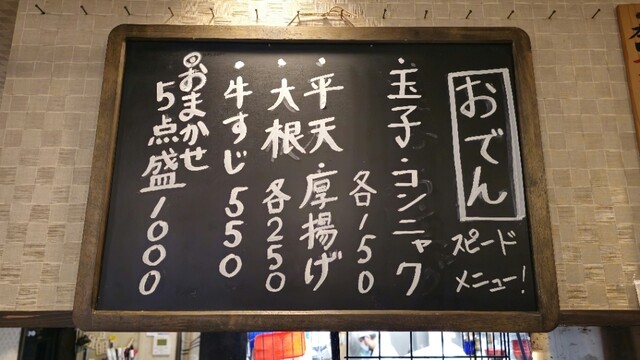 おでん
スピード
メニュー!
・玉子・コンニャク
各150
・平天・厚揚げ
・大根 各250
・牛すじ 550
◎おまかせ
5点盛 1000